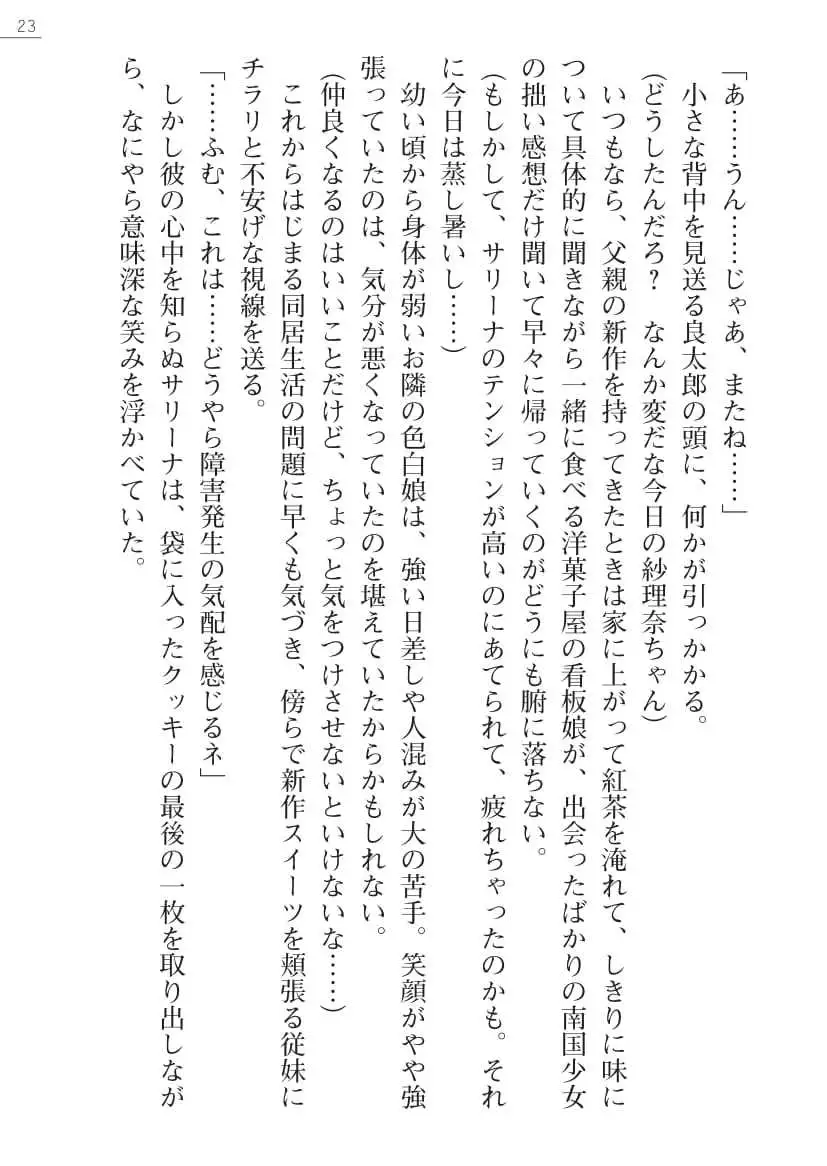 23
「あ……うん……じゃあ、またね……」
小さな背中を見送る良太郎の頭に、何かが引っかかる。
（どうしたんだろ？　なんか変だな今日の紗理奈ちゃん）
いつもなら、父親の新作を持ってきたときは家に上がって紅茶を淹れて、しきりに味に
ついて具体的に聞きながら一緒に食べる洋菓子屋の看板娘が、出会ったばかりの南国少女
の拙い感想だけ聞いて早々に帰っていくのがどうにも腑に落ちない。
（もしかして、サリーナのテンションが高いのにあてられて、疲れちゃったのかも。それ
に今日は蒸し暑いし……）
幼い頃から身体が弱いお隣の色白娘は、強い日差しや人混みが大の苦手。笑顔がやや強
張っていたのは、気分が悪くなっていたのを堪えていたからかもしれない。
（仲良くなるのはいいことだけど、ちょっと気をつけさせないといけないな……）
これからはじまる同居生活の問題に早くも気づき、傍らで新作スイーツを頬張る従妹に
チラリと不安げな視線を送る。
「……ふむ、これは……どうやら障害発生の気配を感じるネ」
しかし彼の心中を知らぬサリーナは、袋に入ったクッキーの最後の一枚を取り出しなが
ら、なにやら意味深な笑みを浮かべていた。